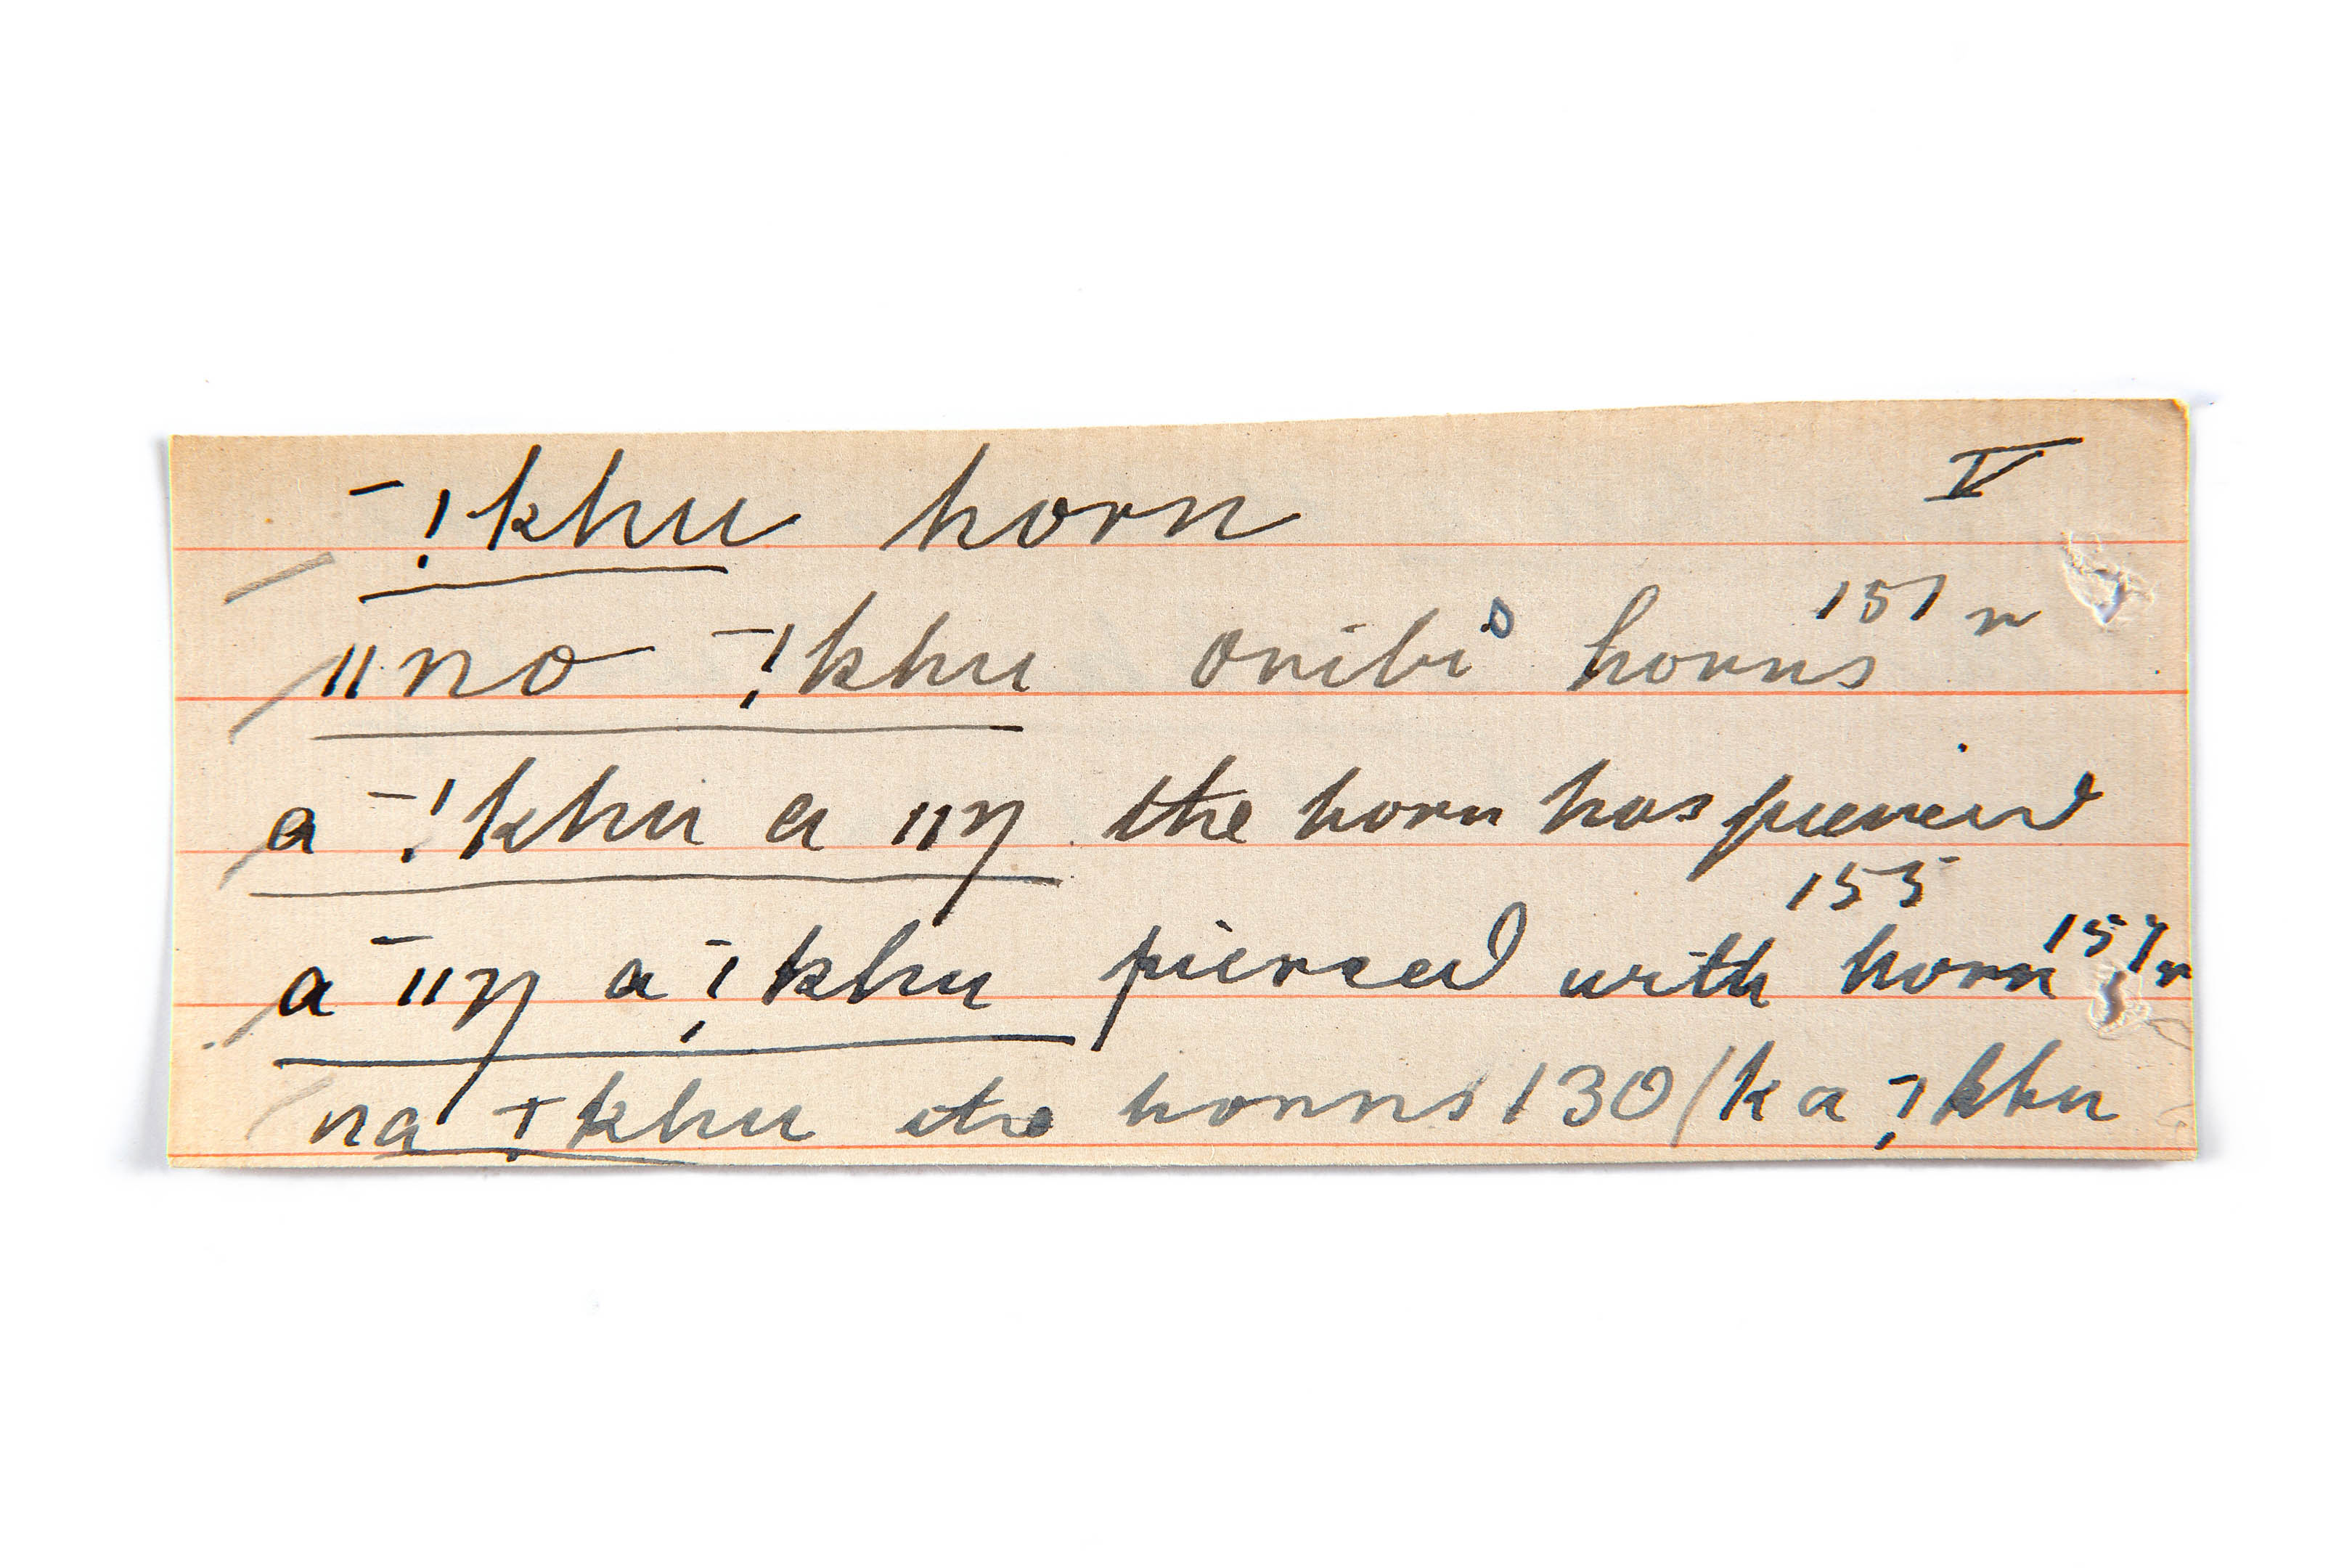 ˉ!khu horn V
ǁno ˉ!khu oribi horns 151 r
a ˉ!khu a ǁŋ the horn has pierced
155
a ˉǁŋ a ˉ!khu pierced with horn 151 r
na ˉ!khu the horns 130/ka ˉ!khu